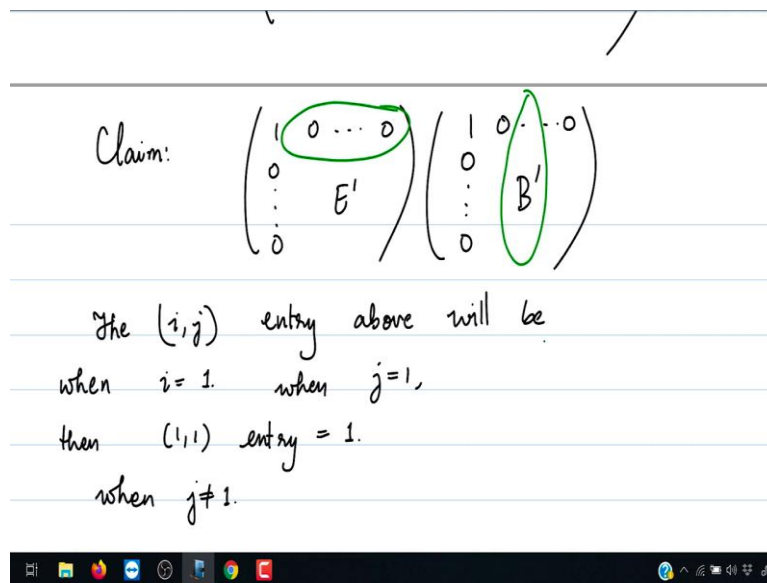 Claim:
1 0 ... 0
0
:
.
0
E'
1 0 . . . 0
0
:
.
0
B'
The (i,j) entry above will be
when i = 1. when j=1,
then (1,1) entry = 1.
when j≠1.